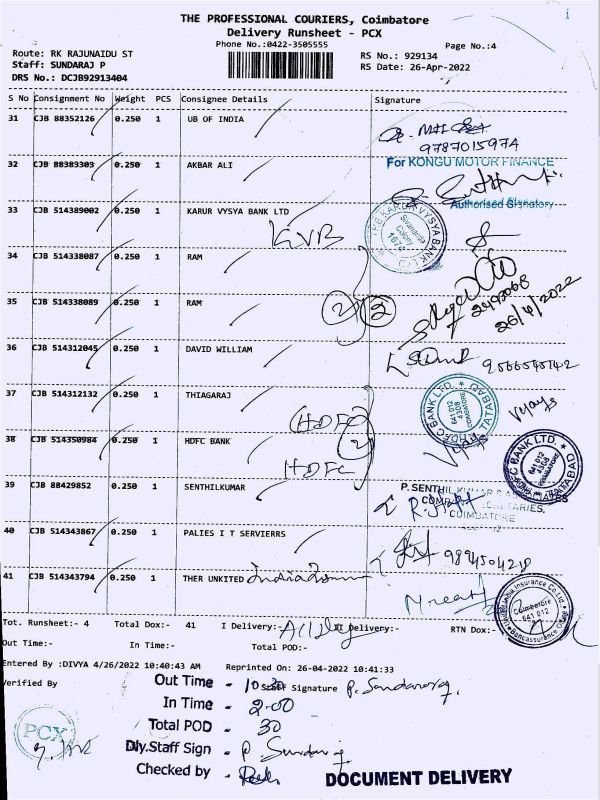 THE PROFESSIONAL COURIERS, Coimbatore
Delivery Runsheet - PCX
Phone No.:0422-3505555
Page No.:4
Route: RK RAJUNAIDU ST
RS No.: 929134
Staff: SUNDARAJ P
RS Date: 26-Apr-2022
DRS No.: DCJB92913404
S No Consignment No Weight PCS Consignee Details Signature
31 CJB 88352126 0.250 1 UB OF INDIA
9787015974
32 CJB 88383303 0.250 1 AKBAR ALI
For KONGU MOTOR FINANCE
Authorised Signatory
33 CJB 514389002 0.250 1 KARUR VYSYA BANK LTD
KVB
34 CJB 514338087 0.250 1 RAM
35 CJB 514338089 0.250 1 RAM
2 2
26/4/2022
36 CJB 514312045 0.250 1 DAVID WILLIAM
37 CJB 514312132 0.250 1 THIAGARAJ
(HDFC)
HDFC BANK LTD. TATABAD
641 012
4308
COIMBATORE
Vijay
38 CJB 514350984 0.250 1 HDFC BANK
HDFC
2
Vijay
BANK LTD.
641 012
4308
39 CJB 88429852 0.250 1 SENTHILKUMAR
P. SENTHIL KUMAR
COIMBATORE
40 CJB 514343867 0.250 1 PALIES I T SERVIERRS
9894504218
41 CJB 514343794 0.250 1 THER UNKITED
Insurance Co. Ltd.
Coimbatore
641 012
Bancassurance
Tot. Runsheet:- 4 Total Dox:- 41 I Delivery:- II Delivery:- RTN Dox:-
Out Time:- In Time:- Total POD:-
Entered By :DIVYA 4/26/2022 10:40:43 AM Reprinted On: 26-04-2022 10:41:33
Verified By
Out Time - 10:30 Staff Signature P. Sundaraj.
In Time - 2.00
Total POD - 30
Dly.Staff Sign - P Sundaraj
Checked by -
PCX
DOCUMENT DELIVERY